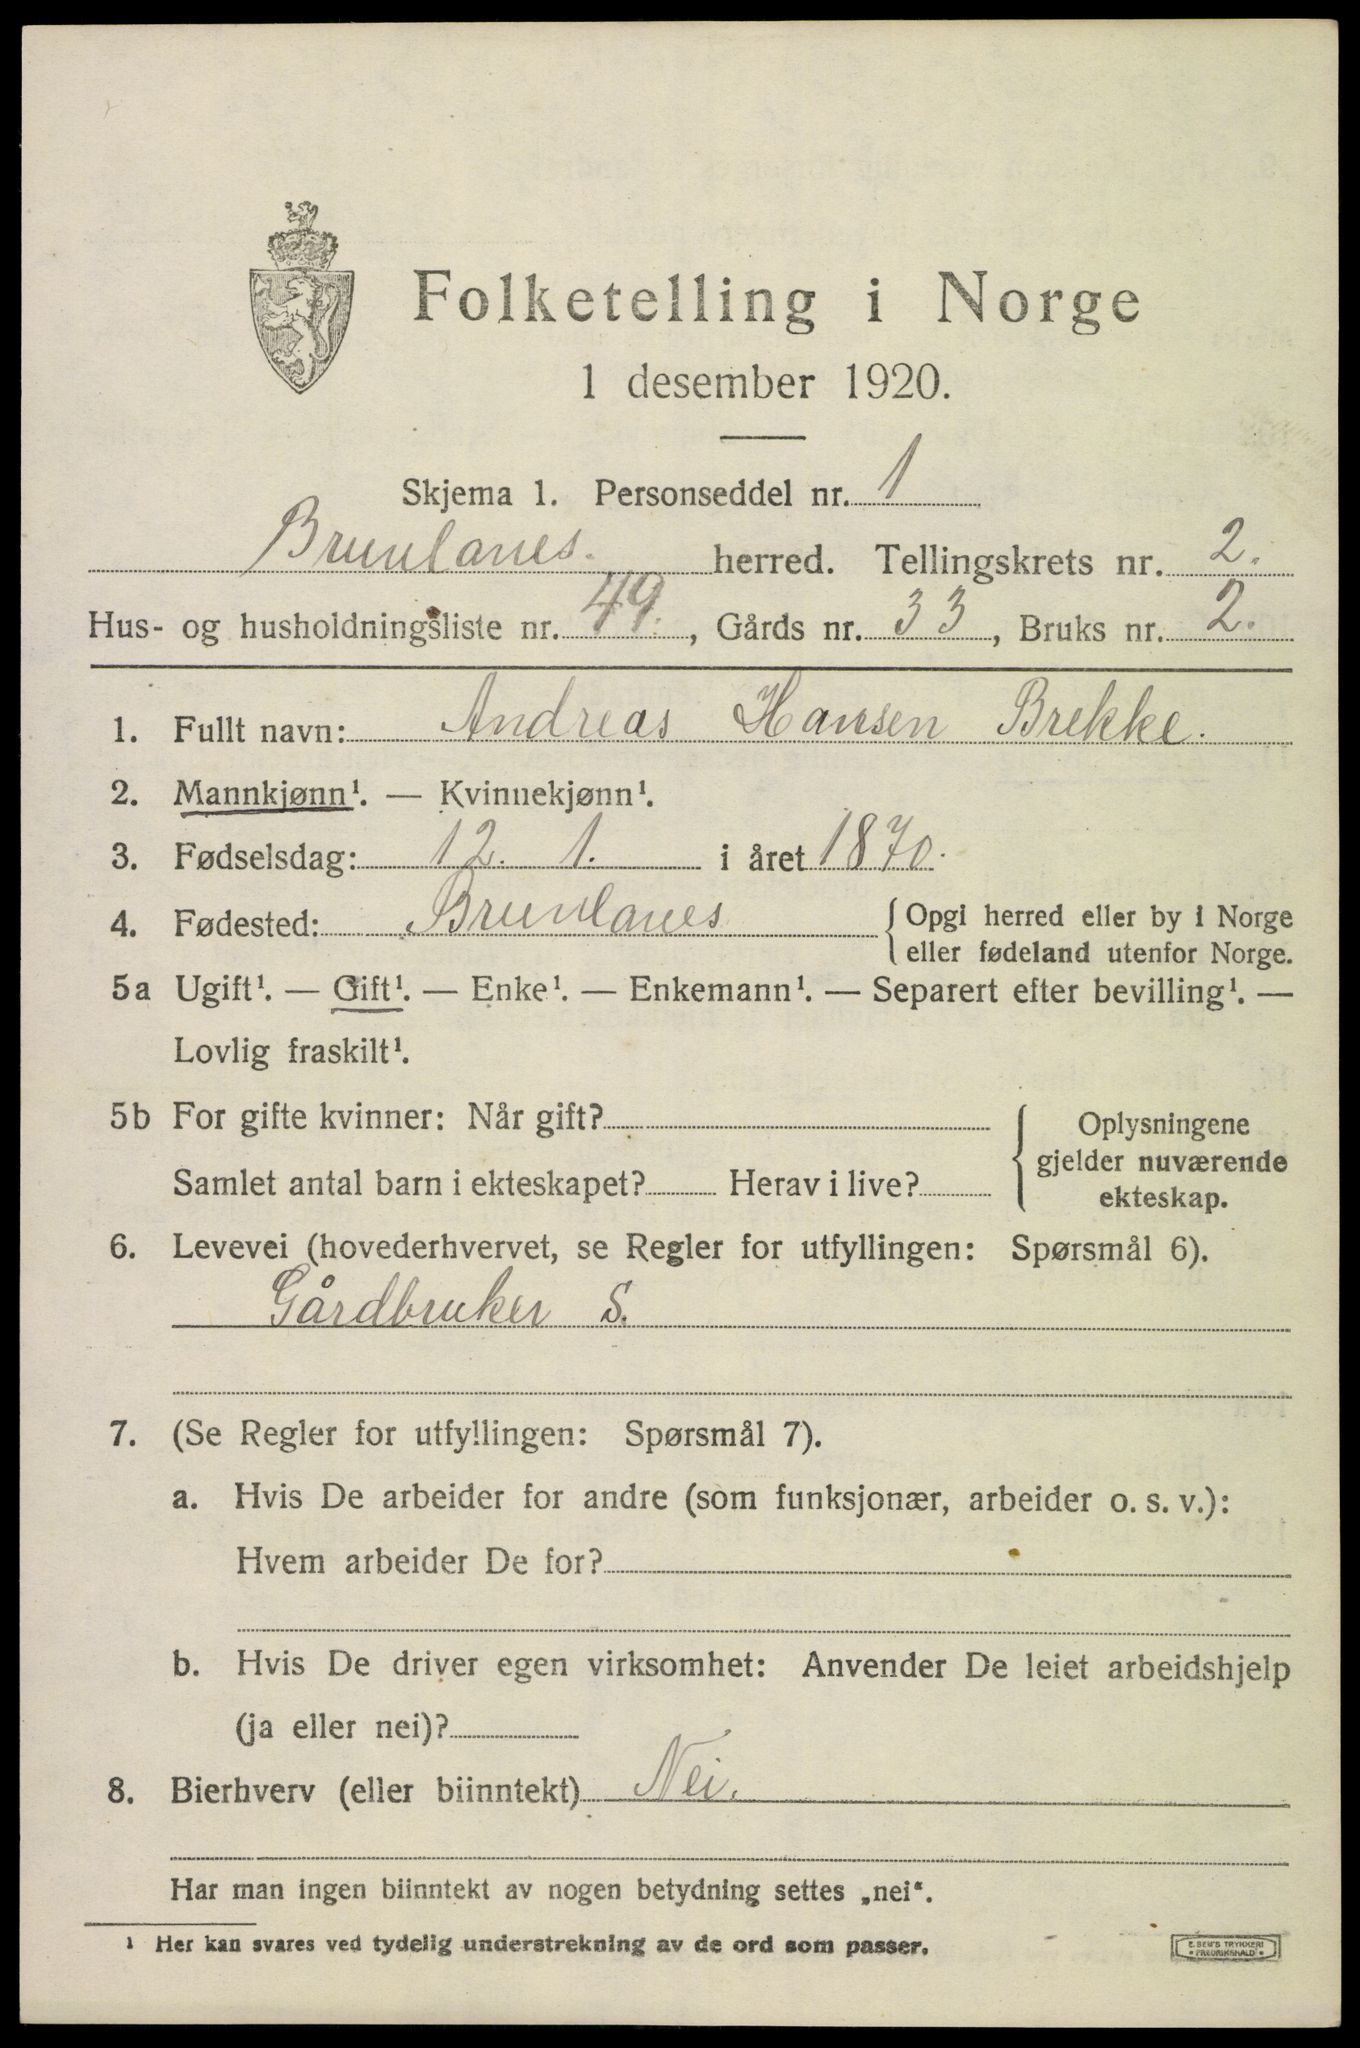 Folketelling i Norge
1 desember 1920.
Skjema 1. Personseddel nr. 1
Brunlanes. herred. Tellingskrets nr. 2.
Hus- og husholdningsliste nr. 49., Gårds nr. 33, Bruks nr. 2.
1. Fullt navn: Andreas Hansen Brekke.
2. Mannkjønn¹. — Kvinnekjønn¹.
3. Fødselsdag: 12. 1. i året 1870.
4. Fødested: Brunlanes { Opgi herred eller by i Norge
eller fødeland utenfor Norge.
5a Ugift¹. — Gift¹. — Enke¹. — Enkemann¹. — Separert efter bevilling¹. —
Lovlig fraskilt¹.
5b For gifte kvinner: Når gift?
Samlet antal barn i ekteskapet? Herav i live?
{ Oplysningene
gjelder nuværende
ekteskap.
6. Levevei (hovederhvervet, se Regler for utfyllingen: Spørsmål 6).
Gårdbruker S.
7. (Se Regler for utfyllingen: Spørsmål 7).
a. Hvis De arbeider for andre (som funksjonær, arbeider o. s. v.):
Hvem arbeider De for?
b. Hvis De driver egen virksomhet: Anvender De leiet arbeidshjelp
(ja eller nei)?
8. Bierhverv (eller biinntekt) Nei.
Har man ingen biinntekt av nogen betydning settes „nei“.
¹ Her kan svares ved tydelig understrekning av de ord som passer.
E. SEM'S TRYKKERI
• FREDRIKSHALD •